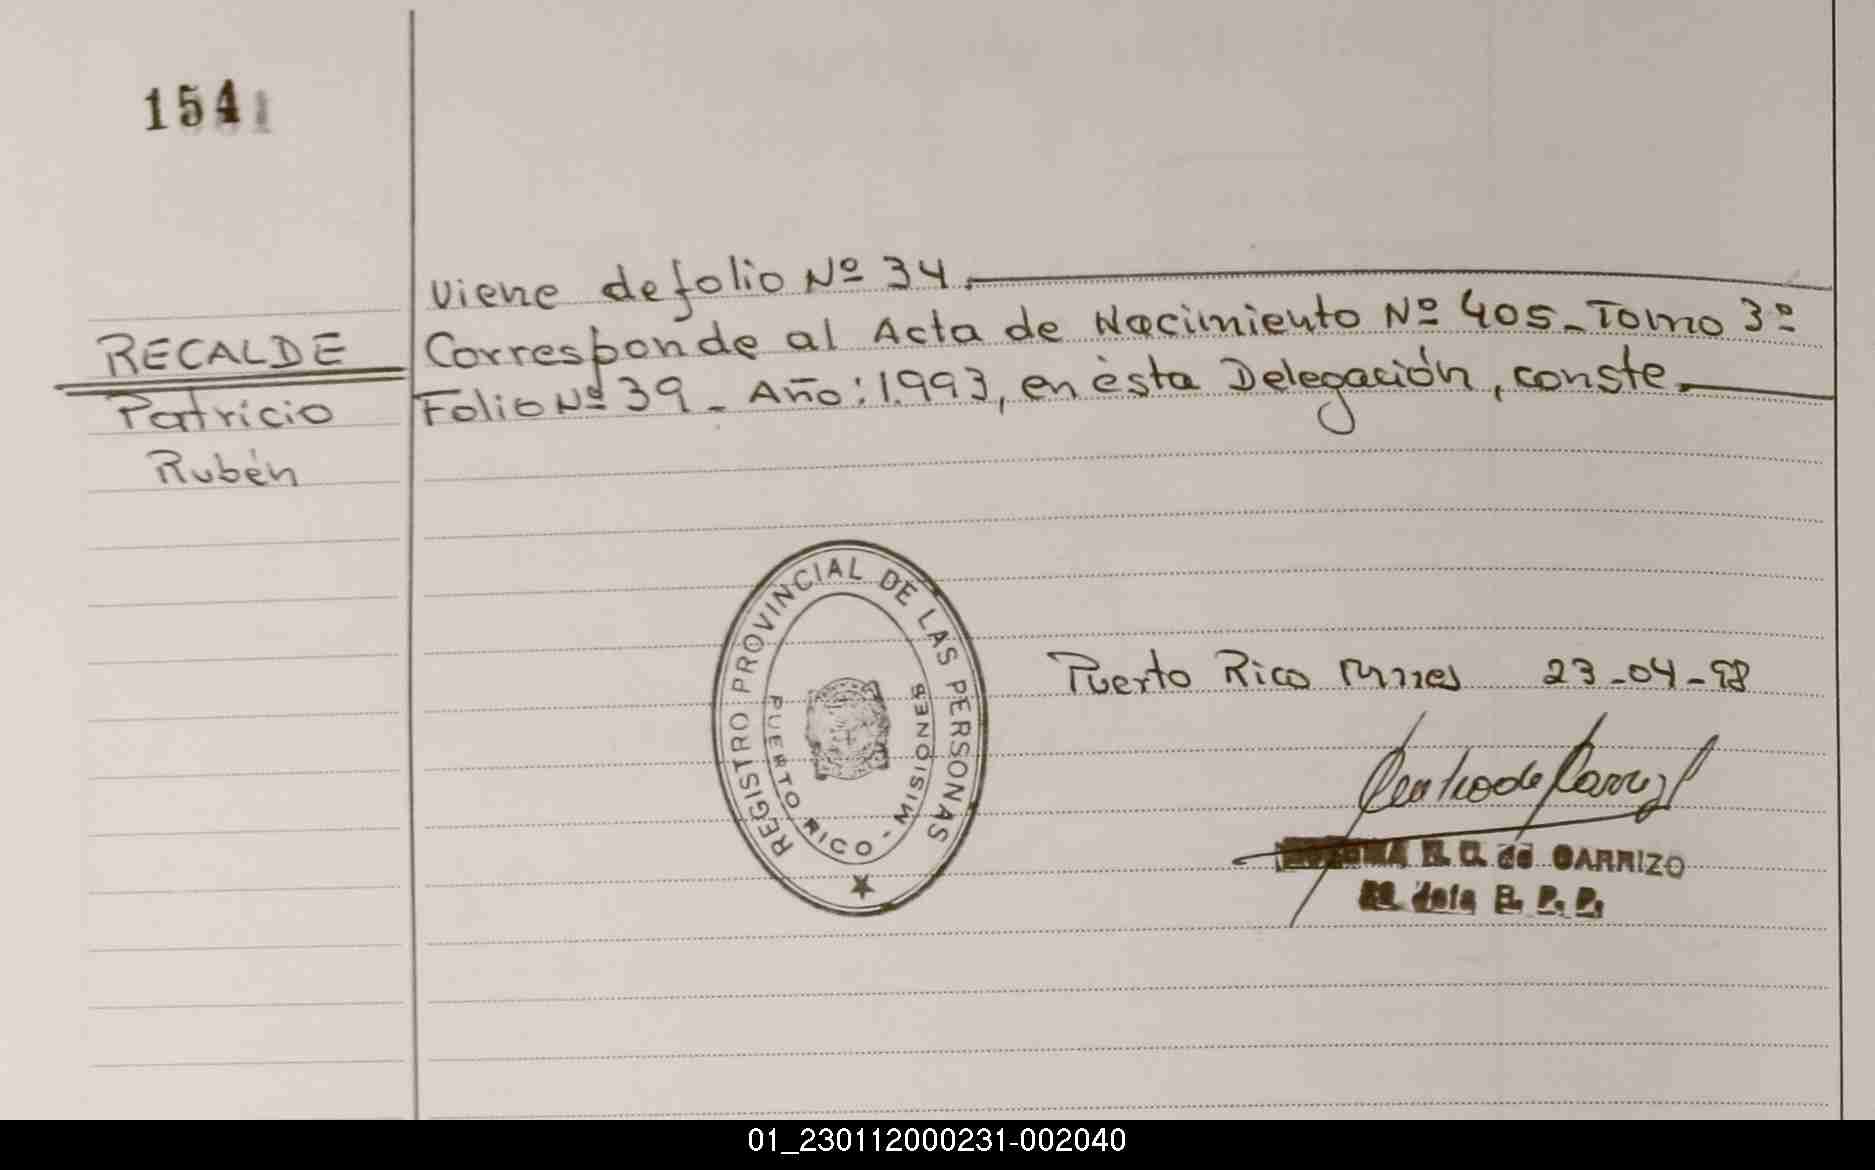 154
Viene de folio Nº 34.
RECALDE
Corresponde al Acta de Nacimiento Nº 405_Tomo 3º
Patricio
Folio Nº 39_ Año: 1.993, en ésta Delegación, conste.
Rubén
REGISTRO PROVINCIAL DE LAS PERSONAS
PUERTO RICO - MISIONES
Puerto Rico Mnes 23-04-98
de CARRIZO
01_230112000231-002040